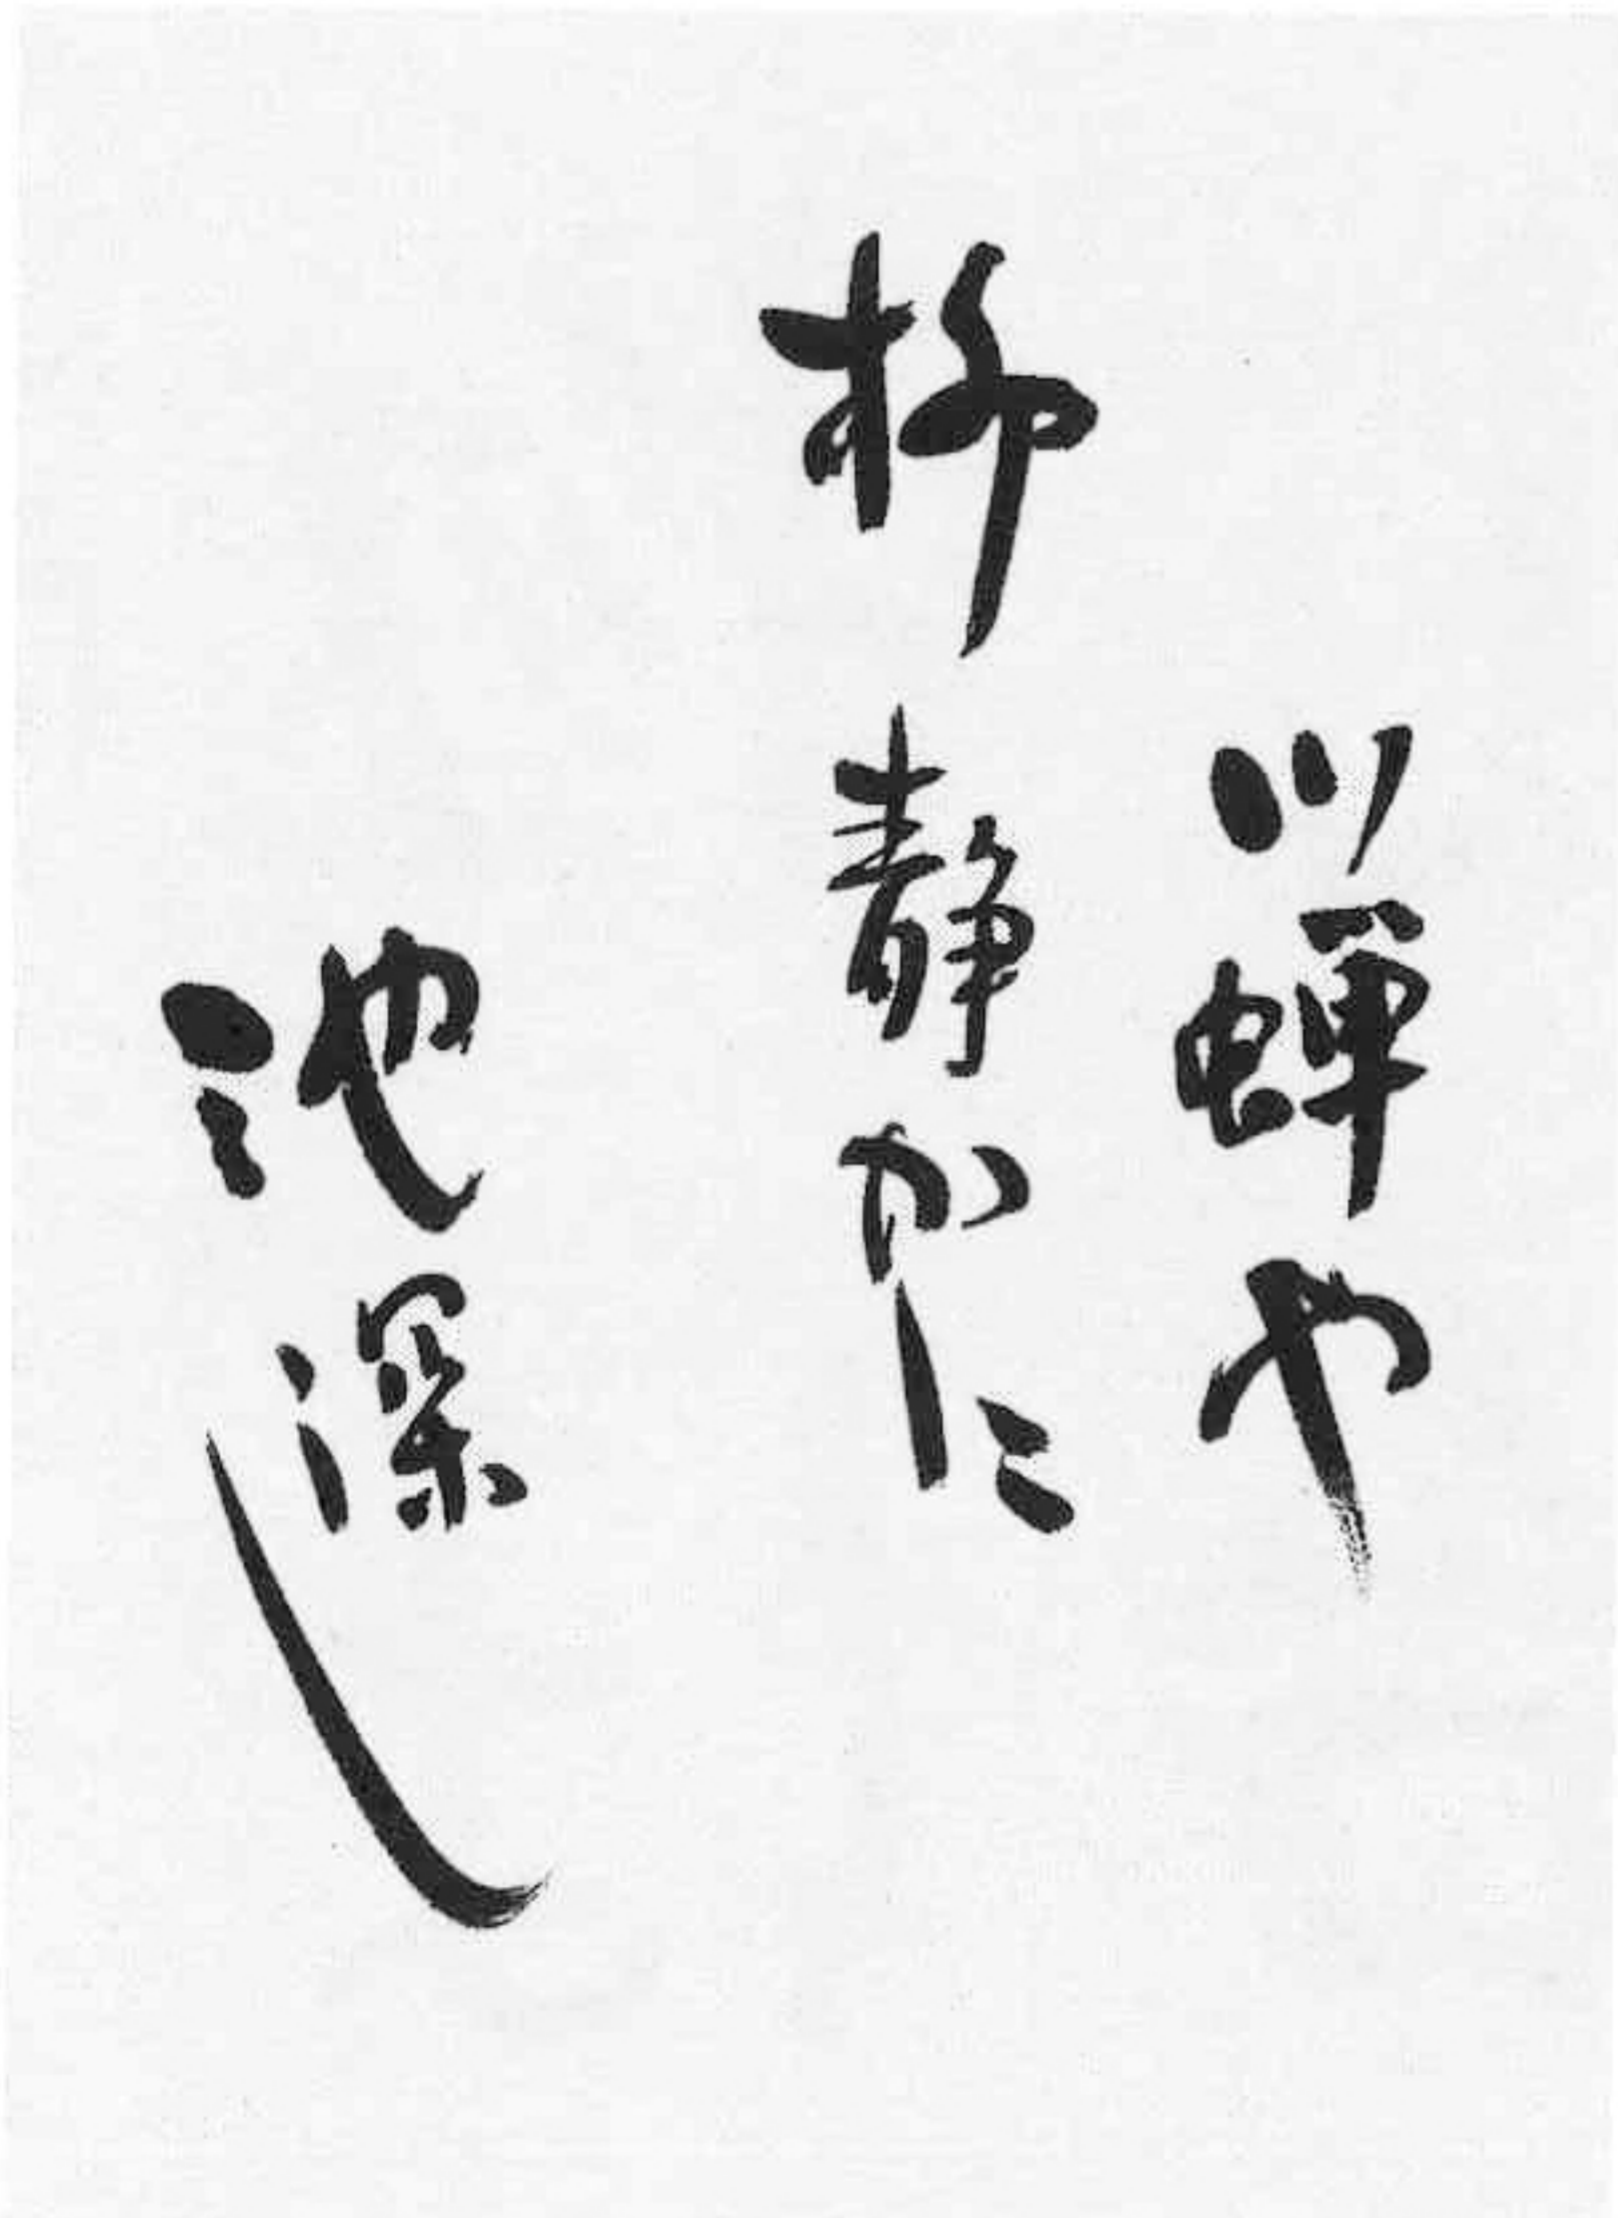 川蝉や
柳静かに
池深し